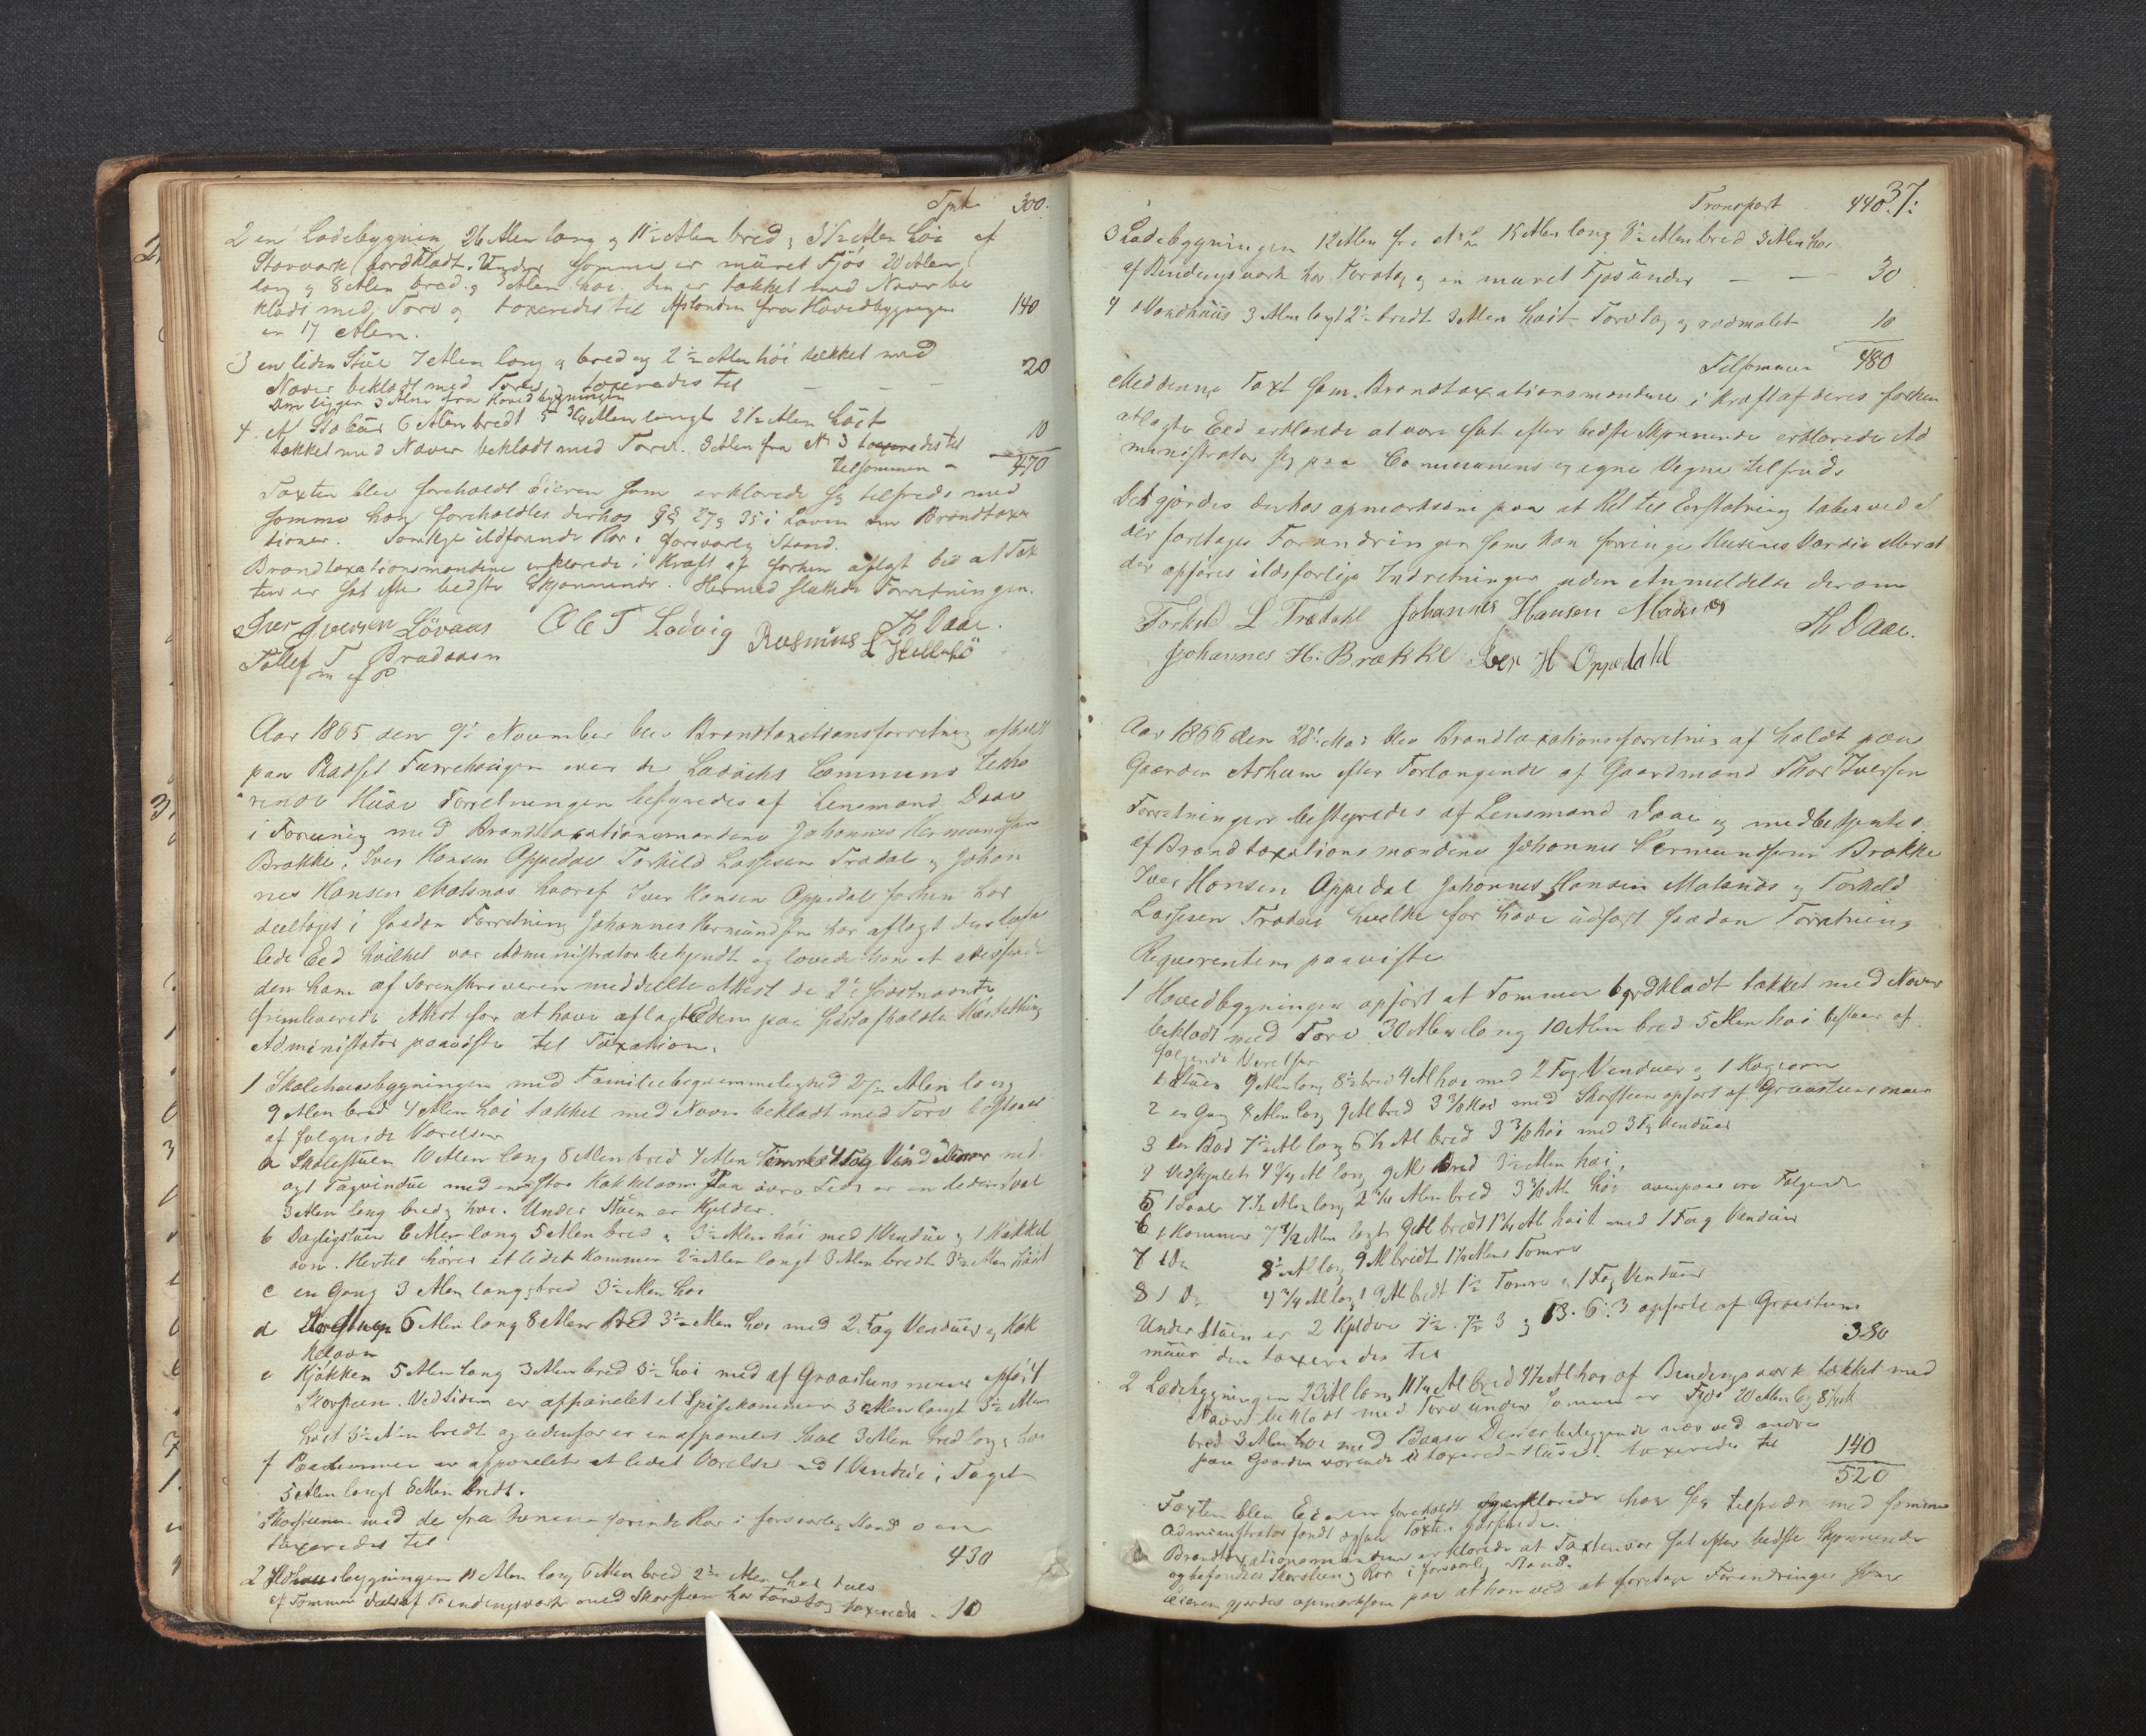 Tpt. 300.
2 en Ladebygning 26 Alen lang og 11½ Alen bred, 3½ Alen høi af
Stavværk bordklædt. Under samme er müret Fjös 20 Alen
lang og 8 Alen bred og 3 Alen høi. den er tækket med Næver be
klædt med Torv og taxeredes til Afstanden fra Hovedbygningen 140
er 17 Alen.
3 en liden Stüe 7 Alen lang og bred og 2½ Alen höi tækket med
Næver beklædt med Torv, taxeredes til — — — 20
Den ligger 3 Alen fra Hovedbygningen
4. et Stabür 6 Alen bredt 5 3/4 Alen langt 2½ Alen høit
tækket med Næver beklædt med Torv. 3 Alen fra No 3 taxeredes til 10
tilsammen - 470
Taxten blev foreholdt Eieren som erklærede sig tilfreds med
samme han foreholdtes derhos §§ 27 og 35 i Loven om Brandtaxa
tioner. Samtlige ildførende Rör i forsvarlig Stand.
Brandtaxationsmændene erklærede i Kraft af forhen aflagt Ed at Tax
ten er sat efter bedste Skjønnende. Hermed sluttede Forretningen.
Iver Iversen Lövaas O E T Ladvig Rasmus L Hellebö Th Daae.
Tollef T Bradaasen
m f P
Aar 1865 den 9de November blev Brandtaxationsforretning afholdt
paa Pladset Furrehougen over de Ladviks Commune tilhø
rende Hüse Forretningen bestyredes af Lensmand Daae
i Forening med Brandtaxationsmændene Johannes Hermundsen
Brække, Iver Hansen Oppedal Torkild Lassesen Trædal og Johan
nes Hansen Malsnæs hvoraf Iver Hansen Oppedal forhen har
deeltaget i saadan Forretning Johannes Hermundsen har aflagt den befa
lede Eed hvilket var Administrator bekjendt og lovede han at
den ham af Sorenskriveren meddeelte Attest de 2de sidstnævnte
fremleverede Attest for at have aflagt Eden paa sidstafholdte Høstething
Administrator paaviste til Taxation.
1 Skolehuusbygningen med Familiebeqvemmelighed 20½ Alen lang
9 Alen bred 4 Alen høi tækket med Næver beklædt med Torv bestaaer
af følgende Værelser
a Skolestüen 10 Alen lang 8 Alen bred 4 Alen Tømmer 4 Fag Vinduer med
og 1 Tagvindue med en stor Kakkelovn Paa øvre Side er en liden Sval
3 Alen lang bred og høi. Under Stüen er Kjelder.
b Dagligstüen 6 Alen lang 5 Alen bred og 3½ Alen høi med 1 Vindüe og 1 Kakkel
ovn. Hertil hører et lidet Kammer 2½ Alen langt 3 Alen bredt 3½ Alen høit
c en Gang 3 Alen lang og bred 3½ Alen høi
d Storstuen 6 Alen lang 8 Alen bred 3½ Alen høi med 2 Fag Vindüer og Kak
kelovn
e Kjökken 5 Alen lang 3 Alen bred 3½ høi med af Graasteens muur opført
Skorsteen. Ved Siden er afpanelet et Spisekammer 3 Alen langt 3½ Alen
høit 3½ Alen bredt og udenfor er en afpanelet Sval 3 Alen bred lang og høi
f Paa Lemmen er afpanelet et lidet Værelse med 1 Vindüe i Taget
5 Alen langt 6 Alen bredt.
Skorstenen med de fra Ovnene førende Rør i forsvarlig Stand
taxeredes til 430
2 Ildhuusbygningen 11 Alen lang 6 Alen bred 2½ Alen høi deels
af Tømmer deels af Bindingsværk med Skorsteen har Torvtag taxeredes - 10
37.
Transport 440
3 Ladebygningen 12 Alen fra No 2 15 Alen lang 8½ Alen bred 3 Alen høi
af Bindingsværk har Torvtag og en muret Fjøs ünder — — 30
4 1 Vandhüüs 3 Alen langt 2½ bredt 3 Alen høit Torvtag og rødmalet 10
Tilsammen 480
Med denne Taxt som Brandtaxationsmændene i Kraft af deres forhen
aflagte Eed erklærede at være sat efter bedste Skjønnende erklærede Ad
ministrator sig paa Communens og egne Vegne tilfreds
Det gjørdes derhos opmærksom paa at Ret til Erstatning tabes ved at
der foretages Forandringer som kan forringe Husenes Værdie eller at
der opføres ildsfarlige Indretninger uden Anmeldelse derom
Torkild L Trædahl Johannes Hansen Malsnes Th Daae.
Johannes H. Brække Iver H Oppedahl
Aar 1866 den 28de Mai blev Brandtaxationsforretning af holdt paa
Gaarden Asheim efter Forlangende af Gaardmand Thor Iversen
Forretningen bestyredes af Lensmand Daae og medbetjentes
af Brandtaxationsmændene Johannes Hermundsen Brække
Iver Hansen Oppedal Johannes Hansen Malsnæs og Torkeld
Lassesen Trædal hvilke før have udført saadan Forretning
Reqvirenten paaviste
1 Hovedbygningen opført af Tømmer bordklædt tækket med Næver
beklædt med Torv 30 Alen lang 10 Alen bred 5 Alen høi bestaar af
følgende Værelser
1 Stüen 9 Alen lang 8½ bred 4 Al høi med 2 Fag Vinduer og 1 Kogeovn
2 en Gang 8 Alen lang 9 Al bred 3 3/8 høi med Skorsteen opført af Graasteensmuur
3 en Bod 7½ Al lang 6½ Al bred 3 3/8 høi med 3 Fag Vindüer
4 Vedskjulet 4 3/4 Al lang 9 Al bred 3½ Alen høi,
5 1 Sval 7½ Alen lang 2 3/4 Alen bred 3 3/8 Al høi ovenpaa ere Følgende
6 1 Kammer 7½ Alen langt 9 Al bredt 1¾ Al høit med 1 Fag Vindüer
7 1 Do 8½ Al lang 9 Al bredt 1½ Alens Tømre
8 1 Do 4 3/4 Al langt 9 Al bredt 1½ Tømre og 1 Fag Vindüer
Under Stüen er 2 Kjeldere 7½. 7½ 3 og 13. 6. 3 opførte af Graasteens
müür den taxeredes til 380
2 Ladebygningen 23 Al lang 11¼ Al bred 4½ Al høi af Bindingsværk tækket med
Næver beklædt med Torv under samme er Fjøs 20 Alen lang 8½
bred 3 Alen høi med Baase Den er beliggende nær ved andre
paa Gaarden værende ütaxerede Hüse. taxeredes til 140
520
Taxten blev Eieren foreholdt og erklærede han sig tilfreds med samme
Administrator fandt ogsaa Taxten passende.
Brandtaxationsmændene erklærede at Taxten var sat efter bedste Skjønnende
og befandtes Skorsteen og Rør i forsvarlig Stand.
Eieren gjørdes opmærksom paa at han ved at foretage Forandringer som